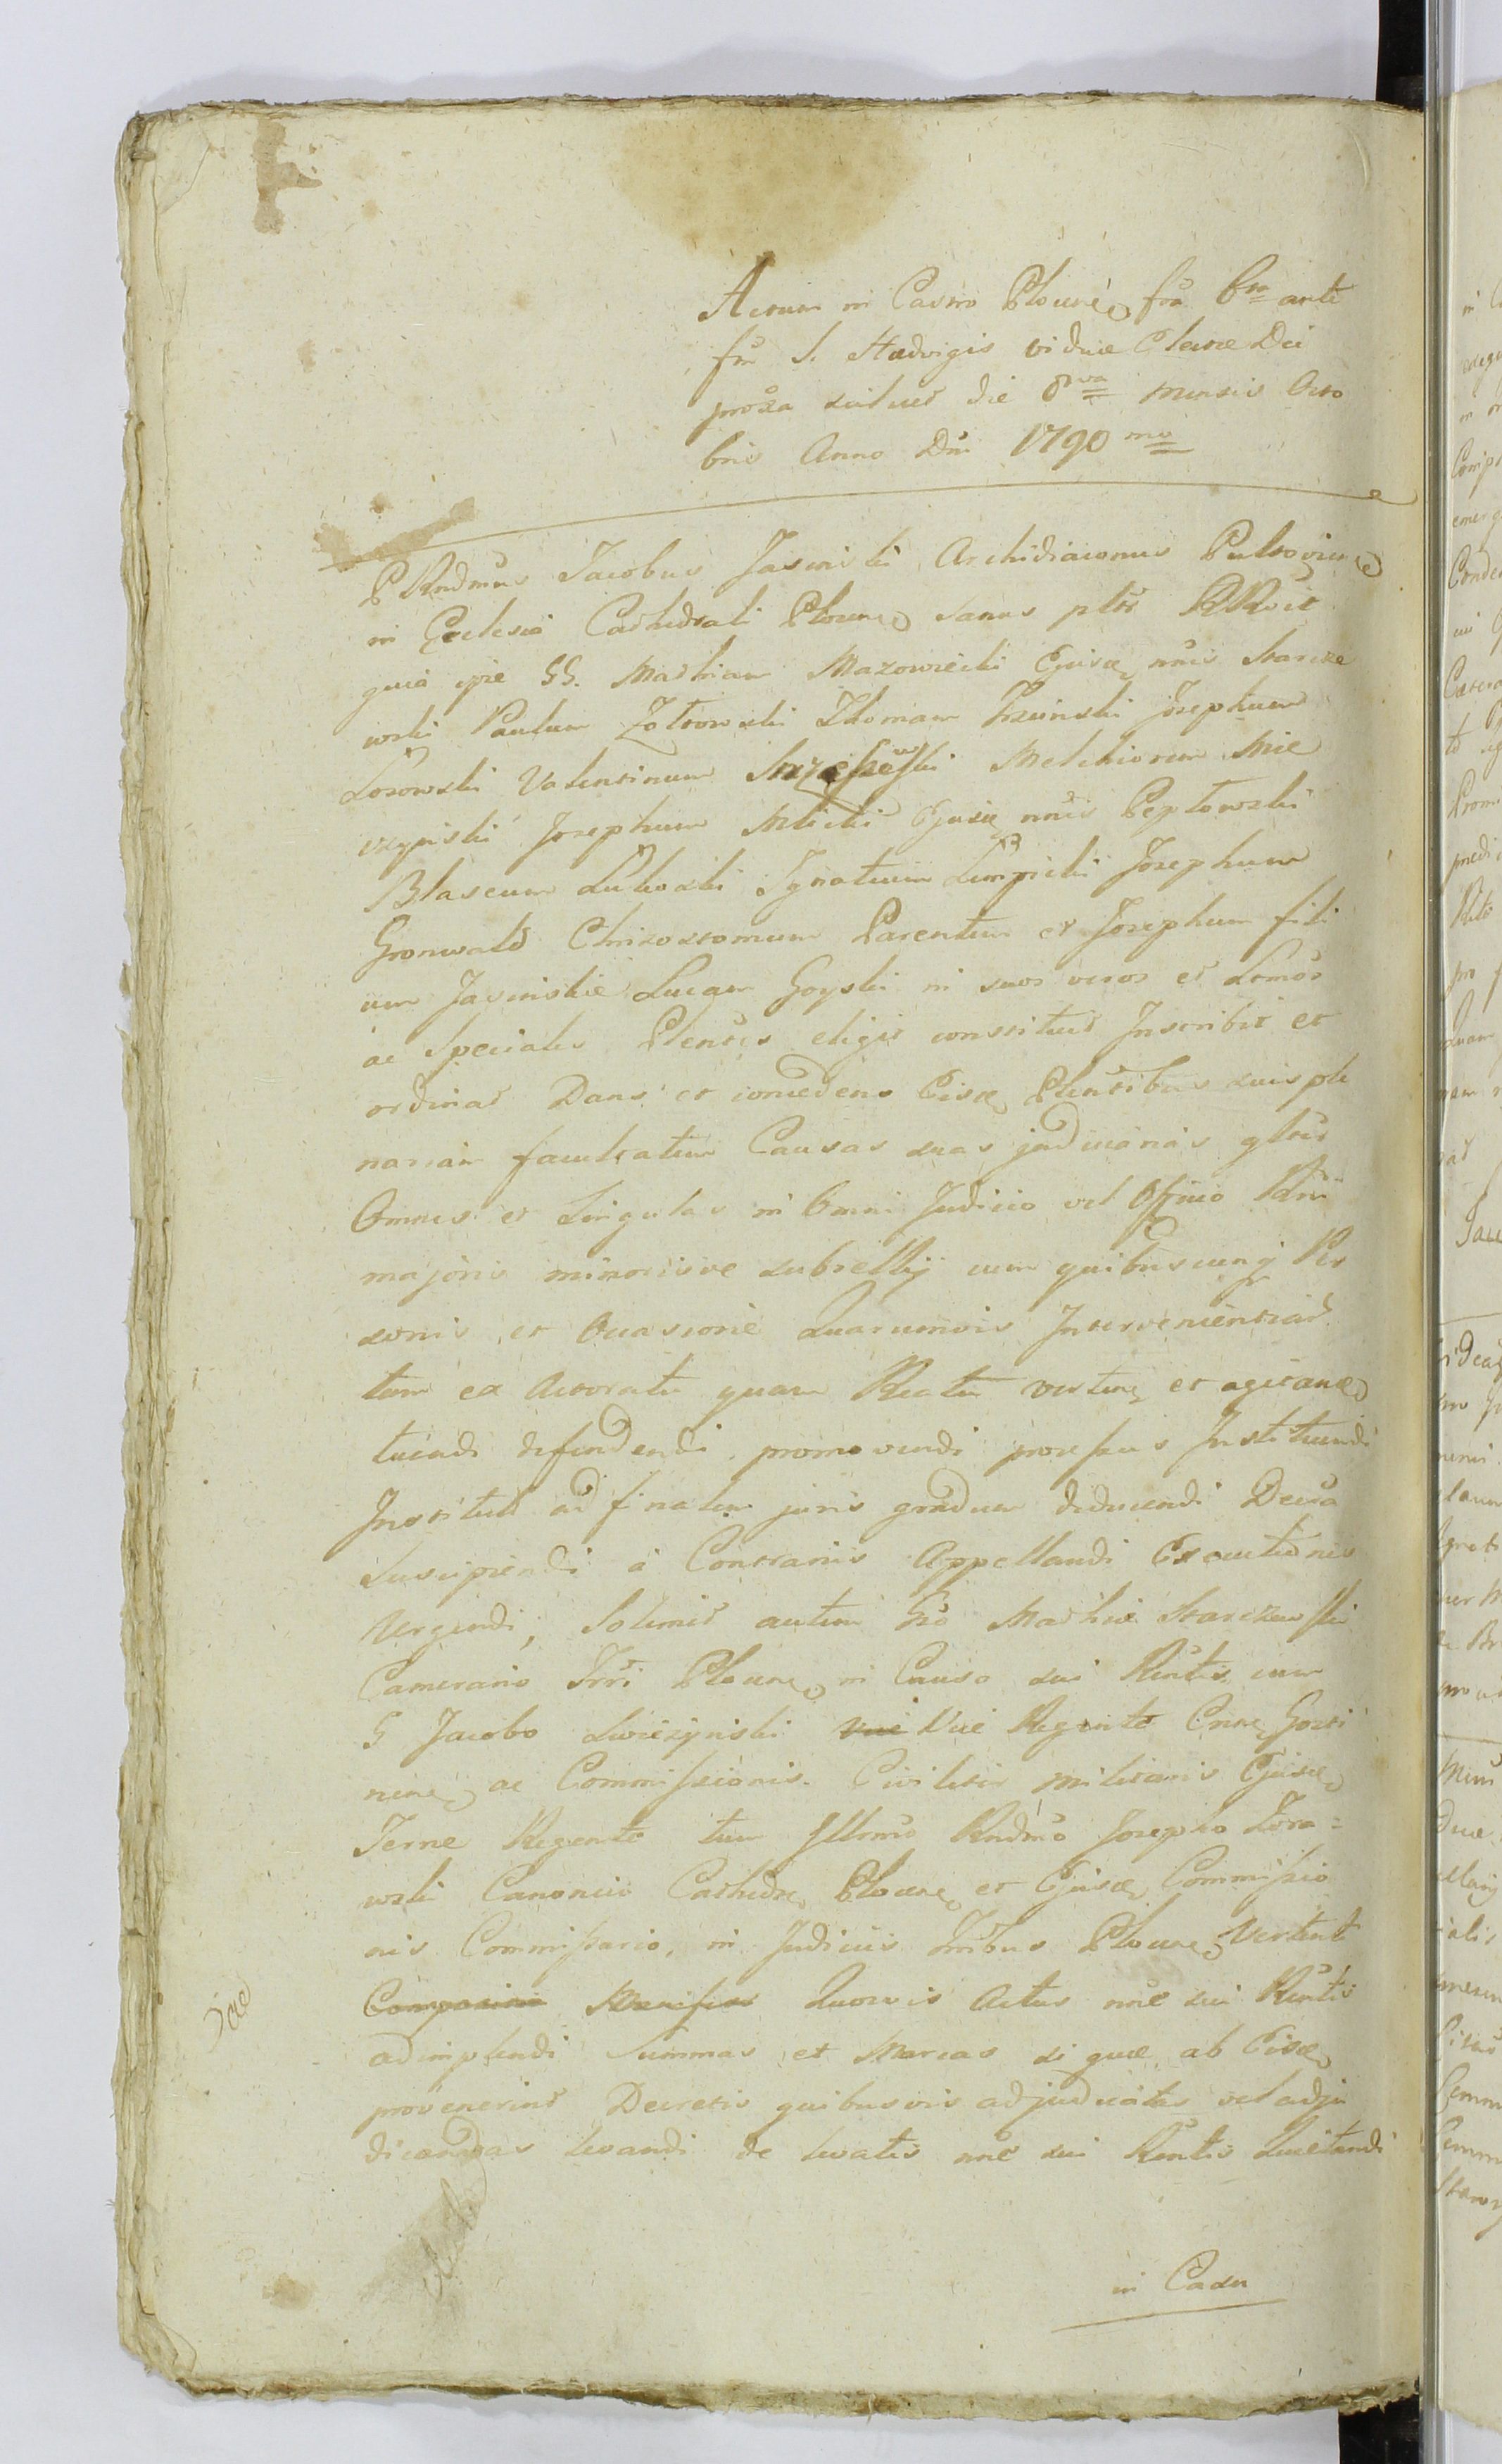 Actum in Castro Plocen fra 6ta ante
fm S. Hedvigis viduae Electae Dei
proxa scilicet die 8va mensis Octo
bris Anno Dni 1790mo
PRndmus Jacobus Jasinski Archidiaconus Pultovien
in Ecclesia Cathedrali Plocen sanus pltr RRvit
quia ipse GG. Mathiam Mazowiecki Ejusd nnis Starcze
wski Paulum Zołtowski Thomam Trzcinski Josephum
Losowski Valentinum Melchiorem Mie
czynski Josephum Mlicki Ejusd nnis Peptowski
Blaseum Ignatium Lempicki Josephum
Gronwald Chrisostomum Parentem et Josephum fili
um Jasinskie Lucam Goyski in suos veros et Lrmos
ac Speciales Plentes eligit constituit Inscribit et
ordinat Dans et concedens Eisd Plentibus suis ple
nariam facultatem Causas suas judiciarias gltr
Omnes et Singulas in Omni Judicio vel Officio Rdni
majoris minorisve subsellij cum quibuscunq Per
sonis et Occasione Quarumvis Intervenientiar
tam ex Actoratu quam Reatu verten et agitand
tuendi defendendi promovendi processus Instituendi
Institut ad finalem juris gradum deducendi Decra
Suscipiendi a Contrariis Appellandi Executiones
Urgendi, Solimit autem Gso Mathiae Starczewski
Camerario Trri Plocen in Causa sui Rentis cum
G Jacobo Swiezynski Vice Vice Regente Cnne Gosti
nen ac Commissionis Civilitis militaris Ejusd
Terrae Regente tum Illmo Rndmo Josepho Zora=
wski Canonico Cathedr Plocen et Ejusd Commissio
nis Commissario, in Judiciis Trribus Plocen Vertent
Comparins Manifes Quosvis Actus nne sui Rentis
adimplendi Summas et Marcas si quae ab Eisd
provenerint Decretis quibusvis adjudicatas vel adju
dicandas levandi de levatis nne sui Rentis Quietandi
in Casu